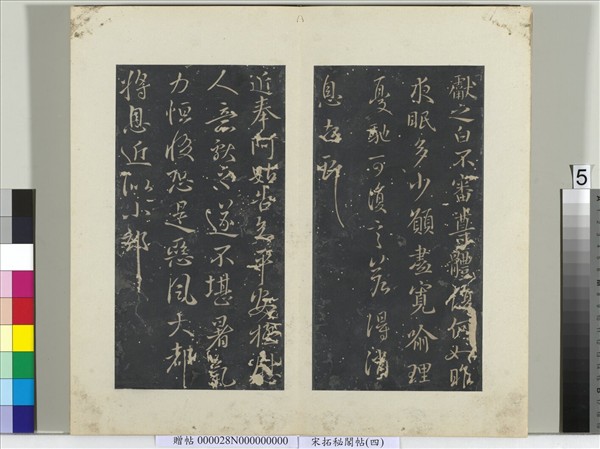 獻之白不審尊體復何如昨
來眠多少願盡寬喻理
憂馳可復言若得消
息
近奉阿姑告安極慰
人意獻之遂不堪暑氣
力恒惙恐是惡風大都
將息近似小卻
5
贈帖 000028N000000000 宋拓秘閣帖(四)